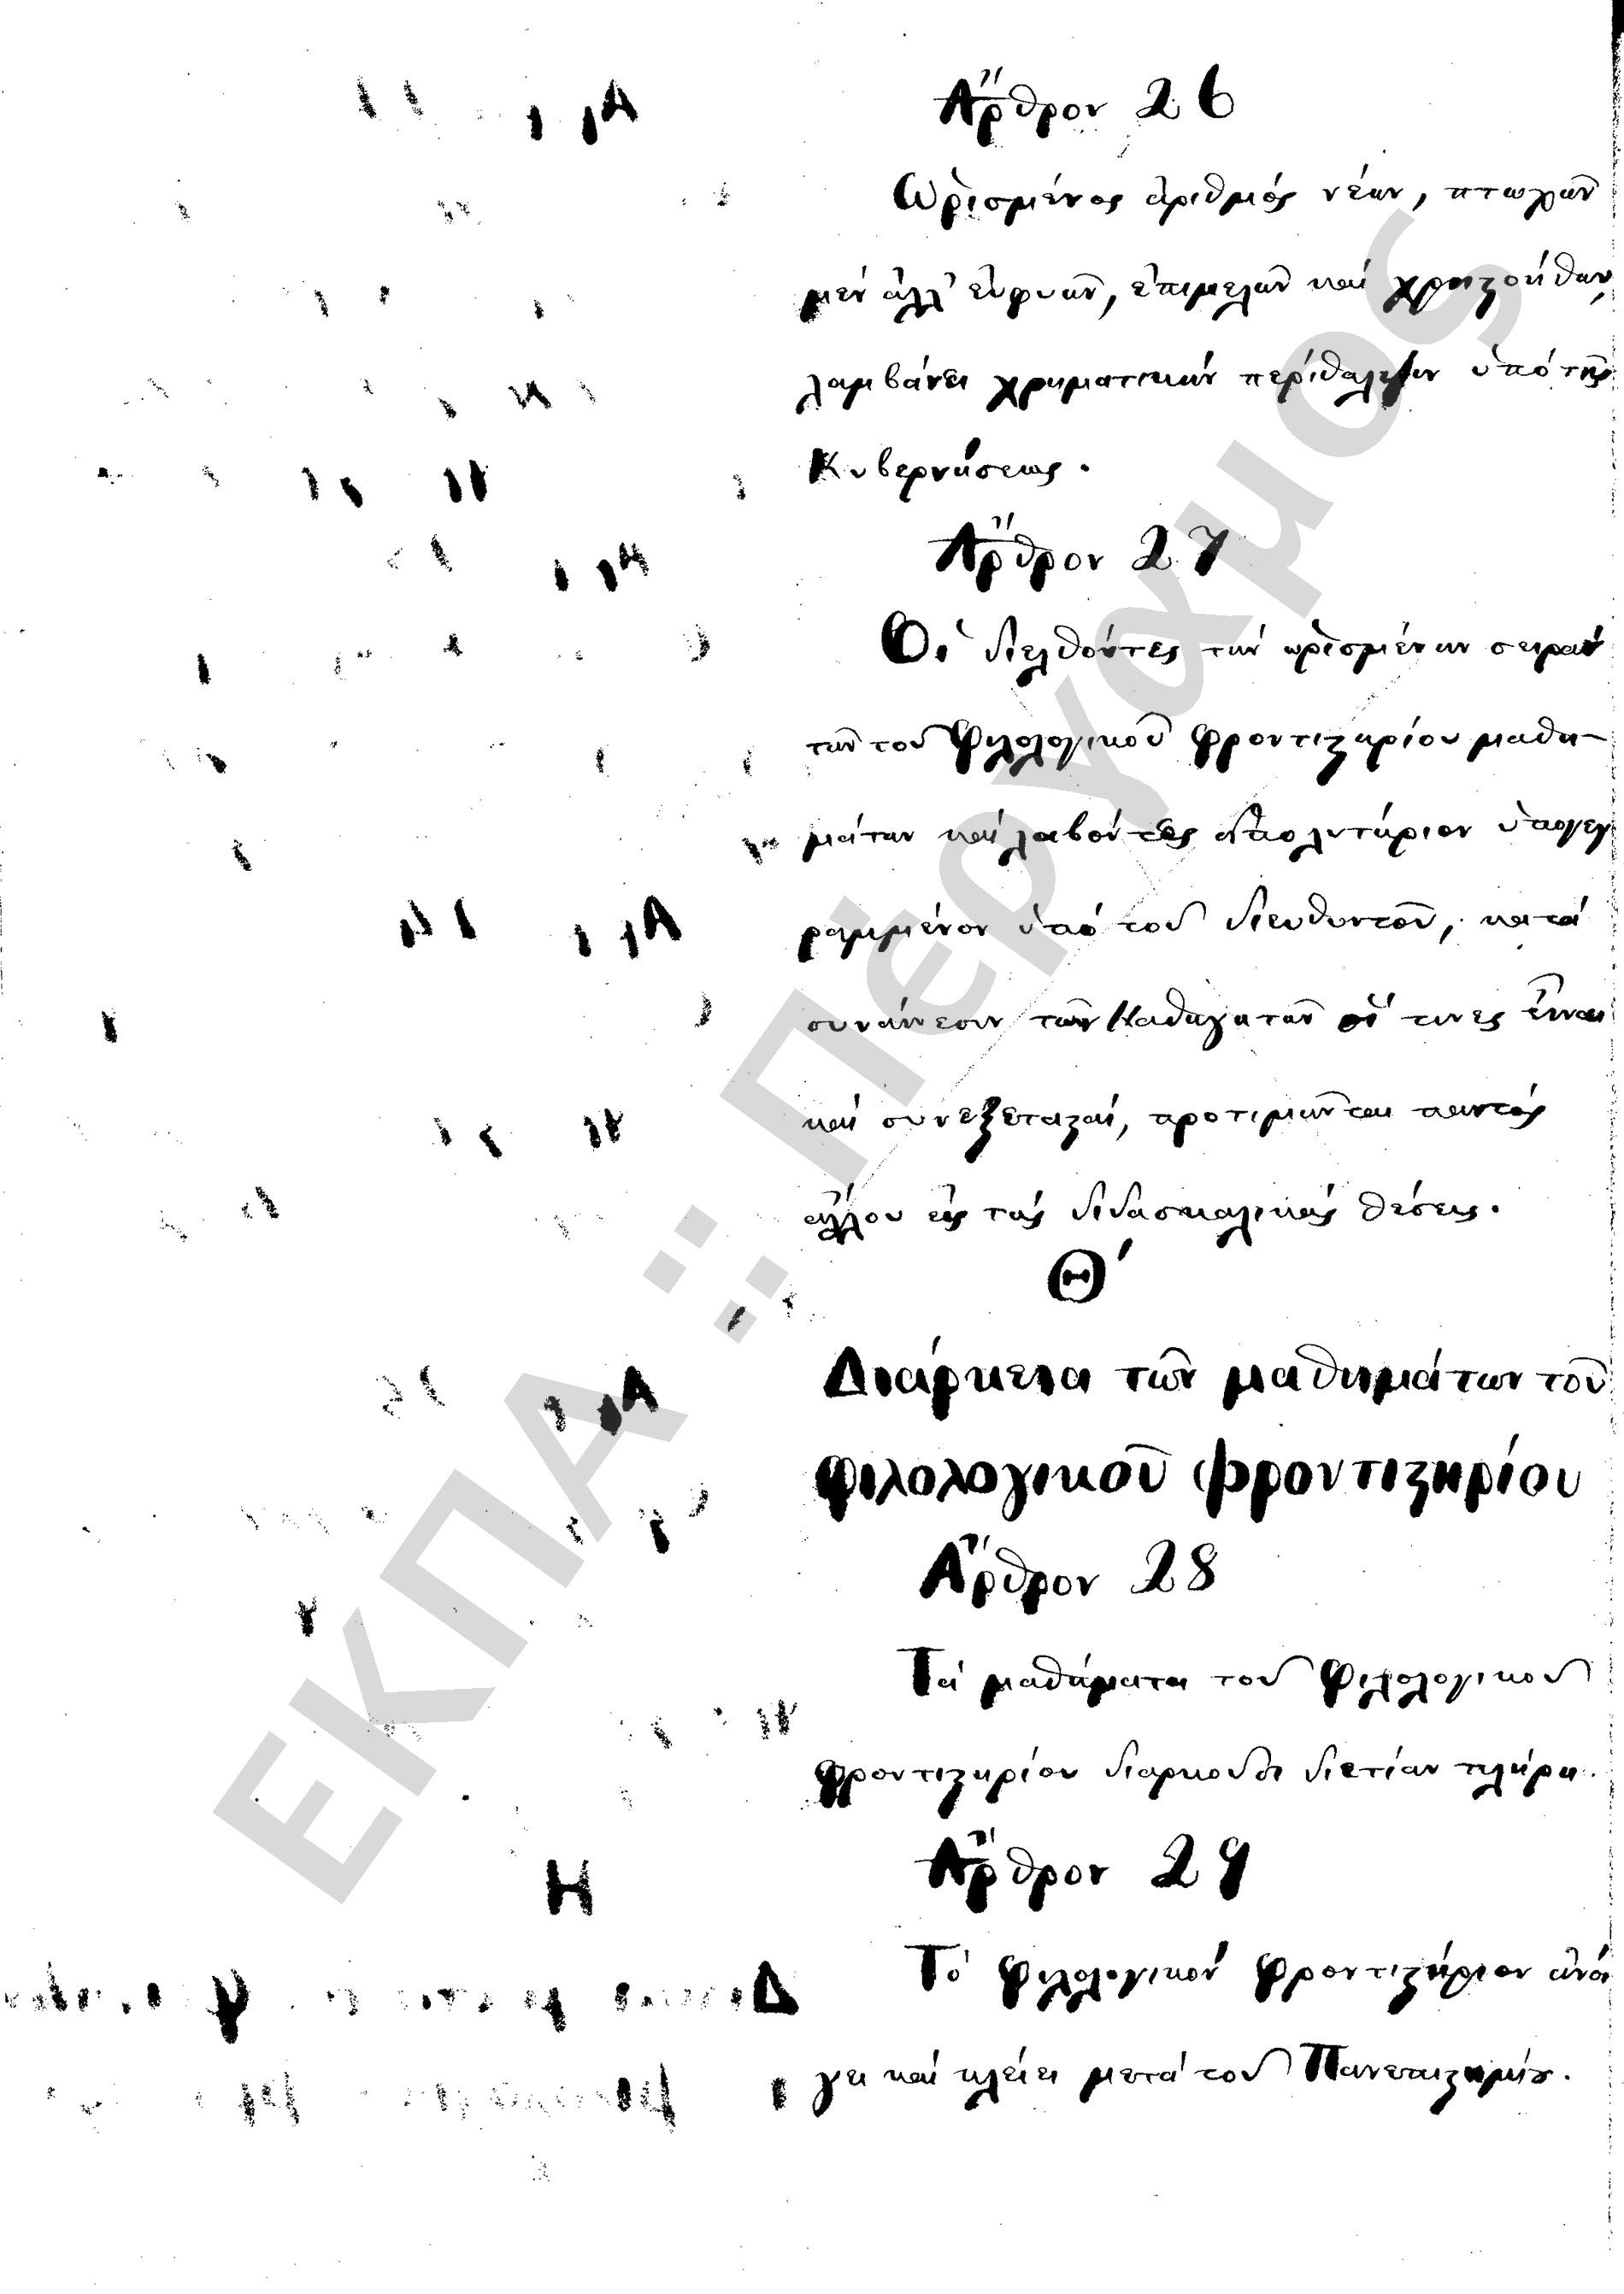 Ἄρθρον 26
Ὡρισμένος ἀριθμός νέων, πτωχῶν
μέν ἀλλ' εὐφυῶν, ἐπιμελῶν καί χρηστοήθων,
λαμβάνει χρηματικήν περίθαλψιν ὑπό τῆς
Κυβερνήσεως.
Ἄρθρον 27
Οἱ διελθόντες τήν ὡρισμένην σειράν
τῶν τοῦ Φιλολογικοῦ Φροντιστηρίου μαθη-
μάτων καί λαβόντες ἀπολυτήριον ὑπογεγ
ραμμένον ὑπό τοῦ διευθυντοῦ, κατά
συναίνεσιν τῶν Καθηγητῶν οἵ τινες εἶναι
καί συνεξετασταί, προτιμῶνται παντός
ἄλλου εἰς τάς διδασκαλικάς θέσεις.
Θ'
Διάρκεια τῶν μαθημάτων τοῦ
Φιλολογικοῦ Φροντιστηρίου
Ἄρθρον 28
Τά μαθήματα τοῦ Φιλολογικοῦ
Φροντιστηρίου διαρκοῦσι διετίαν πλήρη.
Ἄρθρον 29
Τό Φιλολογικόν Φροντιστήριον ἀνοί
γει καί κλείει μετά τοῦ Πανεπιστημίου.
ΕΚΠΑ :: Πέργαμος